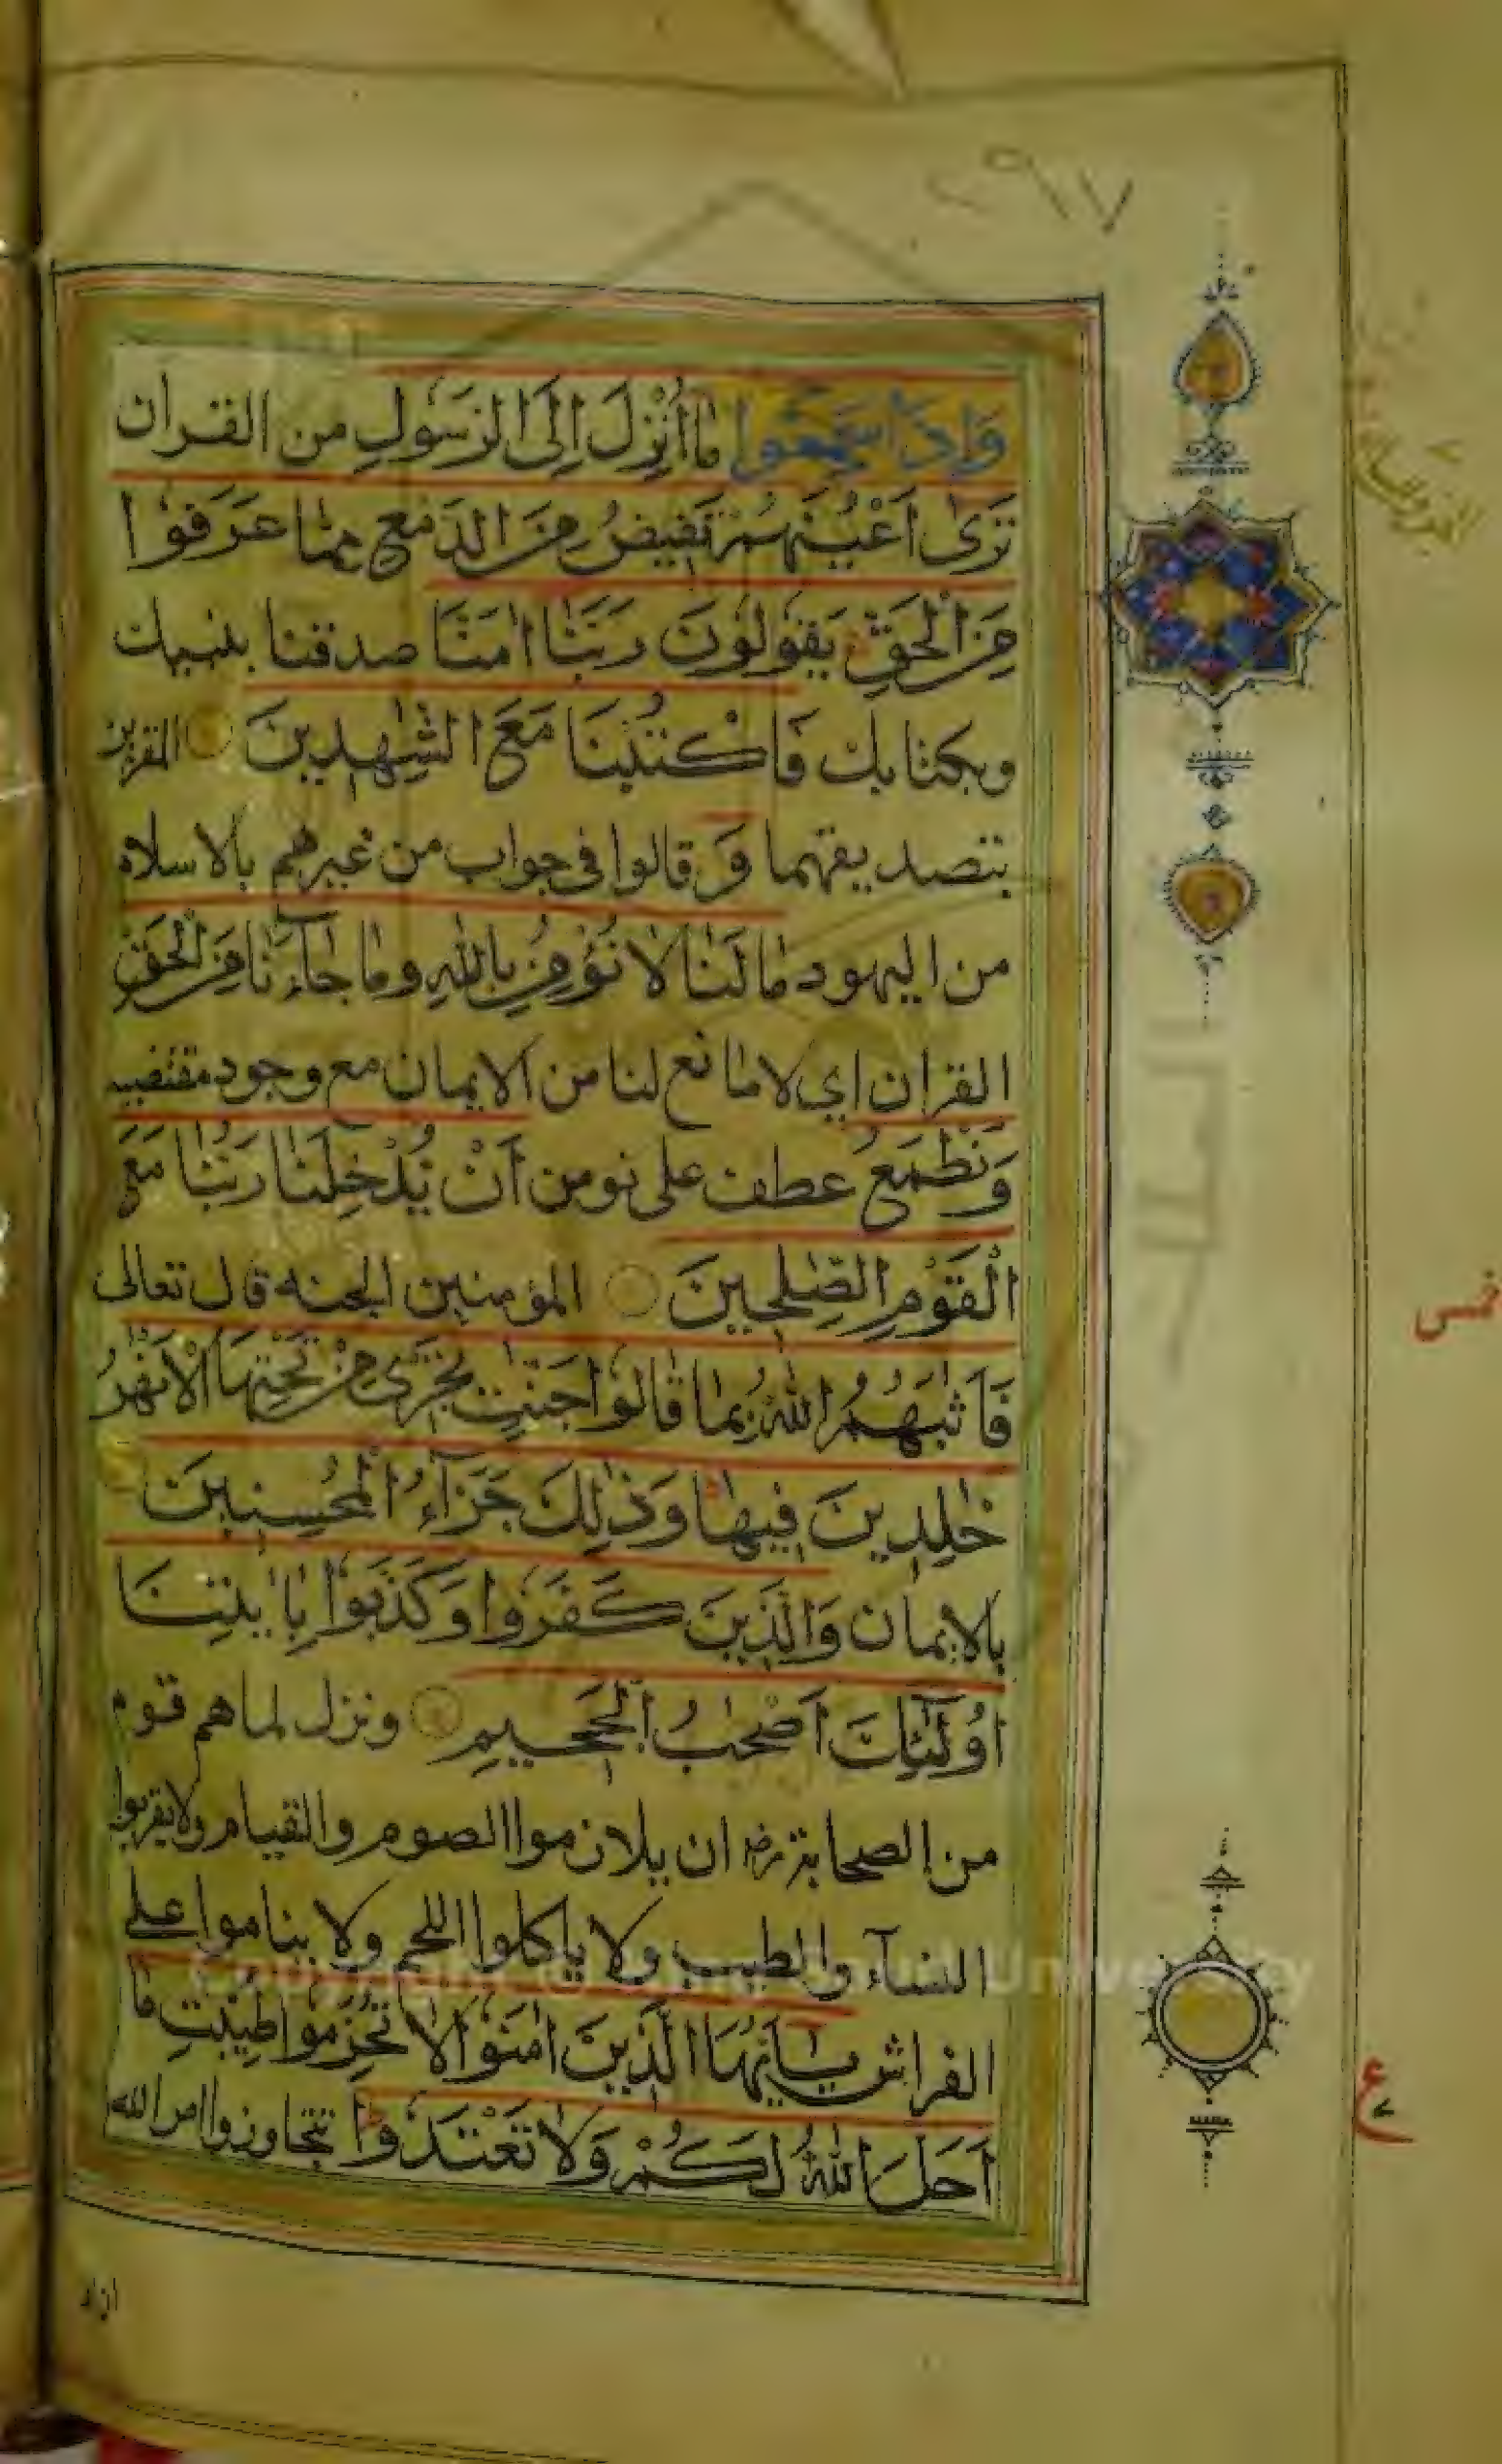 وَاِذَا سَمِعُوا مٰا اُنْزِلَ اِلَى الرَسُولِ من القران
تَرٰى اَعْيُنَهُمْ تَفيضُ مِنَ الدَمعِ مِمّٰا عَرَفوُا
مِنَ الْحَقِّ يَقوُلوُنَ رَبَنٰا اٰمَنّٰا صدقنا بنبيك
وبكتابك فَاكْتُبْنَا مَعَ الشّٰهِدينَ المقربين
بتصديقهما وَ قالوا فى جواب من غيرهم بالاسلام
من اليهود مٰا لَنٰا لٰا نُؤْمِنُ بِاللّٰهِ ومٰا جٰاۤءَنٰا مِنَ الْحَقِّ
القران اي لا مانع لنا من الايمان مع وجود مقتضيه
وَنَطْمَعُ عطف على نومن اَنْ يُدْخِلَنٰا رَبُّنٰا مَعَ
الْقَوْمِ الصّٰلِحينَ المؤمنين الجنه قال تعالى
فَاَثٰبَهُمُ اللّٰهُ بِمٰا قٰالوُا جَنّٰتٍ تَجْرى مِنْ تَحْتِهَا الْاَنْهٰرُ
خٰلِدينَ فيهٰا وَذٰلِكَ جَزَآءُ الْمُحْسِنينَ
بالايمان وَالَّذينَ كَفَروُا وَكَذَبوُا بِاٰيٰتِنَا
اُولٰئِكَ اَصْحٰبُ الْجَحيمِ ونزل لما هم قوم
من الصحابة رض ان يلازموا الصوم والقيام ولا يقربوا
النسآء والطيب ولا ياكلوا اللحم ولا يناموا على
الفراش يٰۤاَيُّهَا الَّذينَ اٰمَنوُا لٰا تُحَرِّموُا طَيِّبٰتِ مٰا
اَحَلَ اللّٰهُ لَكُمْ وَلٰا تَعْتَدوُا تتجاوزوا امر الله
خمس
ع
University